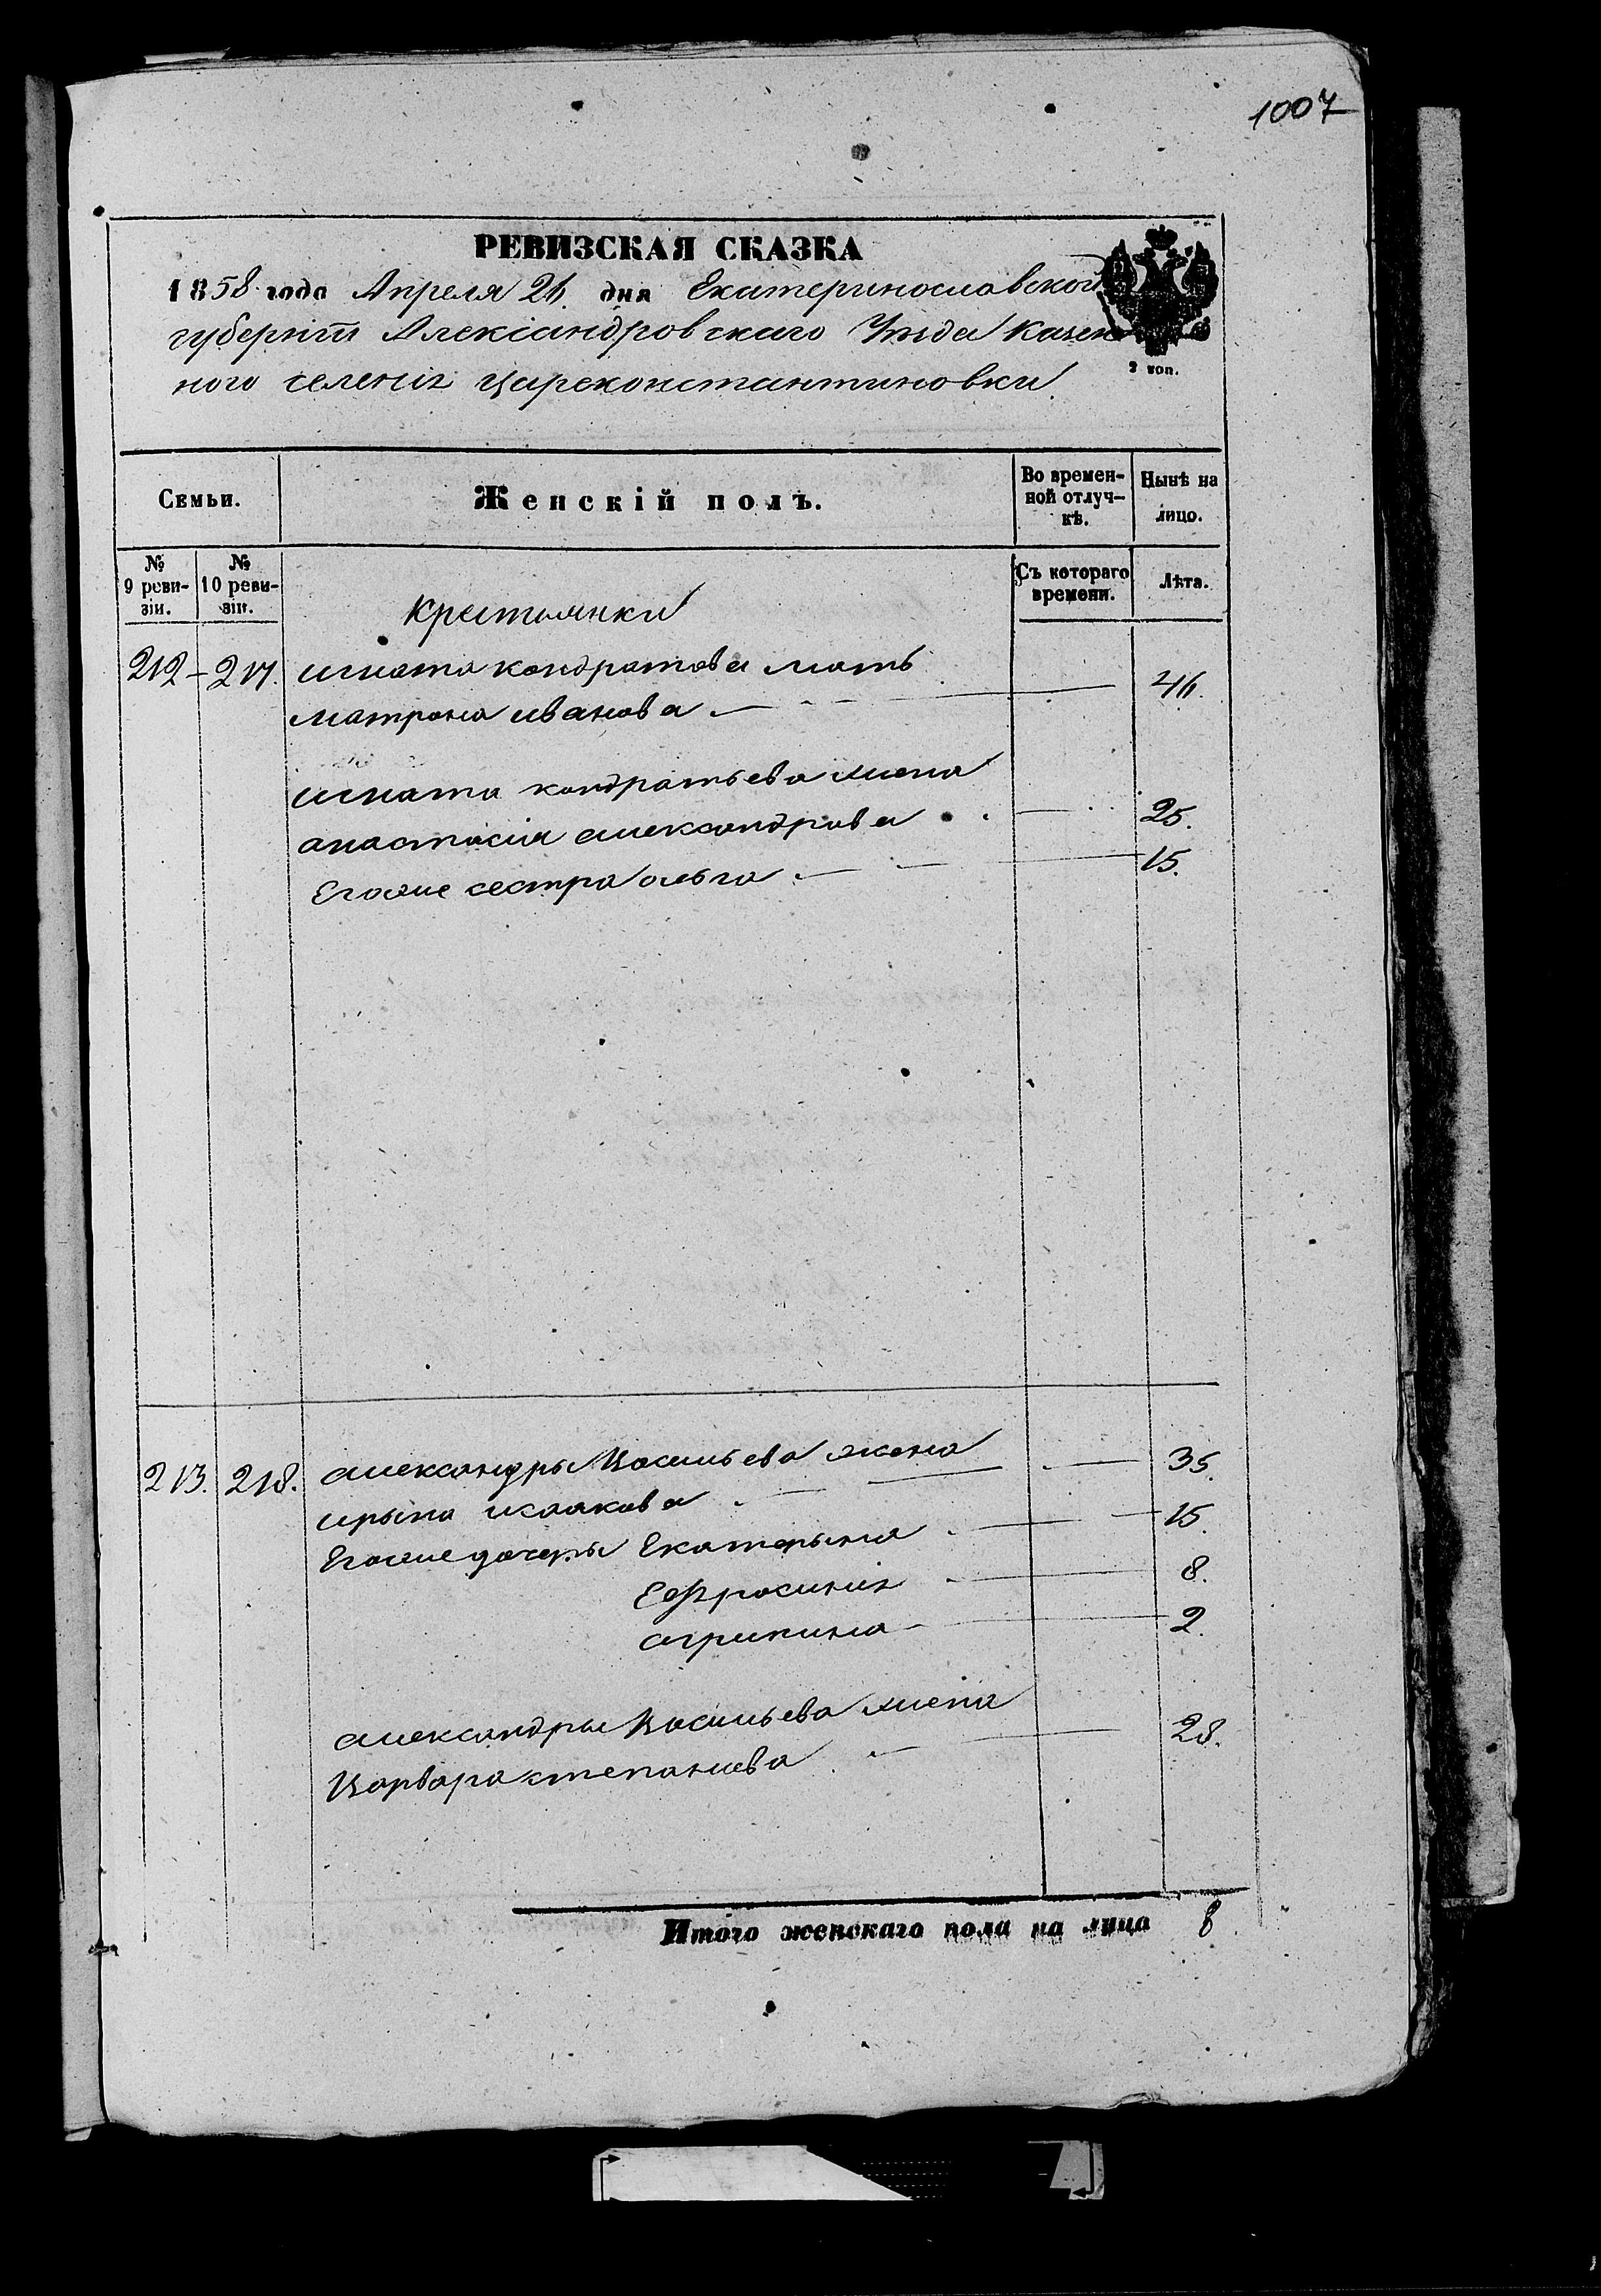 1007
РЕВИЗСКАЯ СКАЗКА
1858 года Апреля 26 дня Екатеринославской
губерніи Александровскаго Уѣзда Казен
ного селенія Цареконстантиновки
2 коп.
Семьи. Женскій полъ. Во времен- Нынѣ на
ной отлуч- лицо.
кѣ.
№ № Съ котораго Лѣта.
9 реви- 10 реви- времени.
зіи. зіи.
крестьянки
212 - 217. игната кондратова мать
матрона иванова 46.
игната кондратьева жена
анастасия александрова 25.
Егоже сестра ольга 15.
213. 218. александры Васильева жена 35.
ирына исаакова
Егоже дочеры Екатерына 15.
Ефросинія 8.
агрипина 2.
александры Васильева жена
Варвара степаниева 28.
Итого женскаго пола на лицо 8